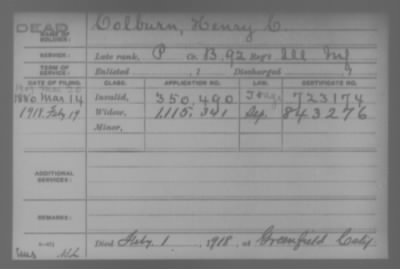 DEAD
NAME OF SOLDIER: Colburn, Henry C.
SERVICE: Late rank, P Co. B, 92 Reg't Ill Inf
TERM OF SERVICE: Enlisted , 1 Discharged , 1
DATE OF FILING. CLASS. APPLICATION NO. LAW. CERTIFICATE NO.
1880 Mar 14 Invalid, 350,490 723174
1918. Feb 19 Widow, 1,115,341 843276
Minor,
ADDITIONAL SERVICES:
REMARKS:
Died Feby 1, 1918, at Greenfield Caly.